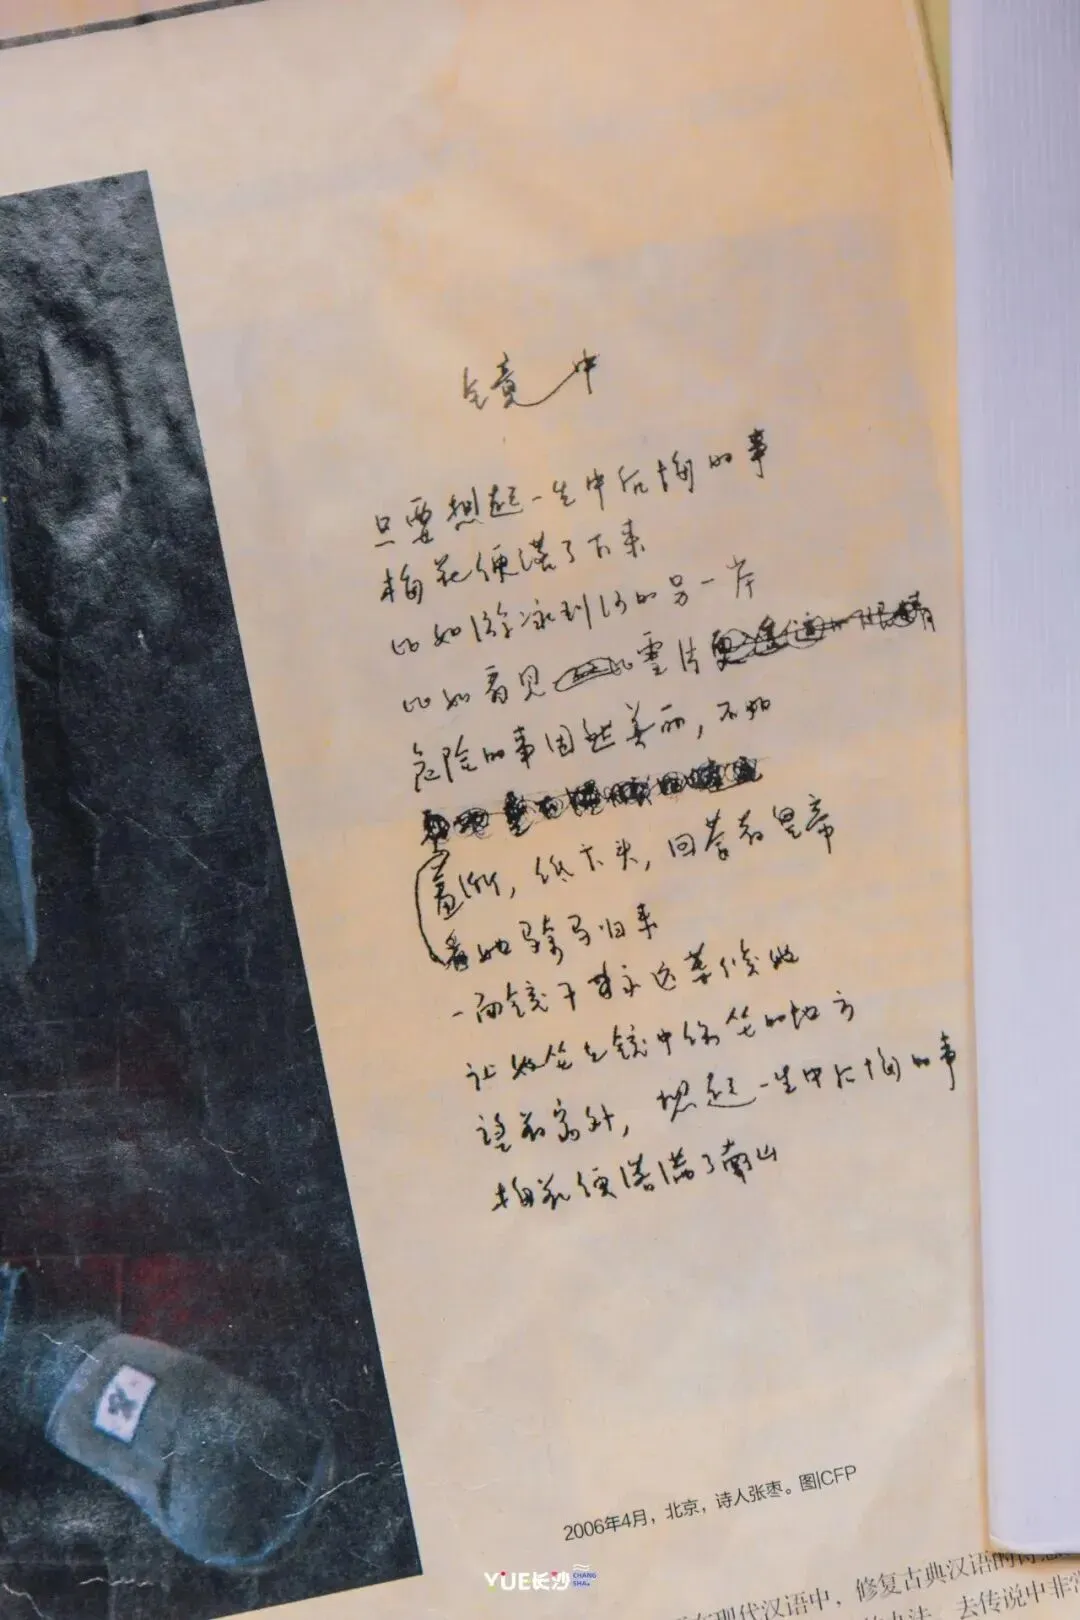 镜中
只要想起一生中后悔的事
梅花便落了下来
比如游泳到河的另一岸
比如看见雪片
危险的事固然美丽，不如
羞惭，低下头，回答着皇帝
看她骑马归来
一面镜子永远等候她
让她坐在镜中坐的地方
望着窗外，想起一生中后悔的事
梅花便落满了南山
2006年4月，北京，诗人张枣。图|CFP
现代汉语中，修复古典汉语的诗意
办法，去传说中非常
YUE长沙 CHANG SHA